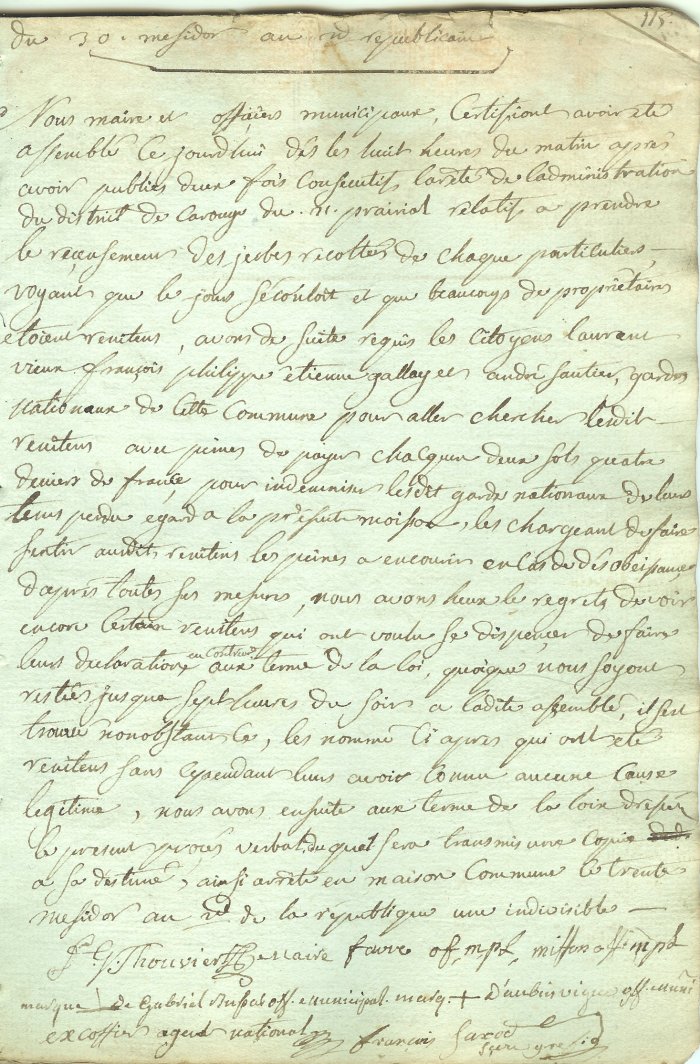 118.
du 30. mesidor an 2d republicain
Nous maire et officiers municipaux, Certifiont avoir été
assemblé Ce jourdhui dès les huit heures du matin après
avoir publiés deux fois Consecutifs larêté de ladministration
du district de Carouge du 21. prairial relatifs a prendre
le reçensement des jerbes recoltés de chaque particuliers,
voyant que le jour sécouloit et que beaucoups de propriétaires
etoient renitens, avons de suite requis les Citoyens laurent
vieux françois philippe etienne gallay et andré sautier, gardes
nationaux de Cette Commune pour aller chercher lesdit
renitens avec peines de payer chacquun deux sols quatre
deniers de france pour indemniser lesdit garde nationaux de leur
tems perdu egard a la présente moison, les chargeant de faire
sentir audits renitens les peines a encourir en Cas de désobeisance
daprès toutes ses mesures, nous avons heux le regrets de voir
encore Certain renitens qui ont voulu se dispençer de faire
leurs declarations au Contenu aux terme de la loi, quoique nous soyont
restés jusqua sept heures du soir a ladite assemblé, il sest
trouvé nonobstant Ce, les nommé Ci après qui ont été
renitens sans Cependant leurs avoir Connu aucune Cause
legitime, nous avons ensuite aux terme de la loix dressé
le present procès verbal duquel sera transmis une Copie
a sa destiné, ainsi arrêté en maison Commune le trente
mesidor an 2d de la république une indivisible
Thouvier maire favre of. mpl,
marque de Gabriel Dupas off. municipal. marq. + D'aubuis vigne off. muni
excoffier agent national françois